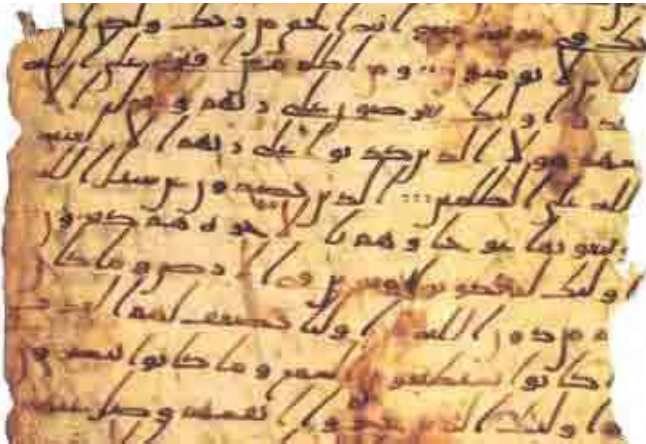 ك في مرية منه انه الحق من ربك ولكن ا
س لا يومنون ومن اظلم ممن افترى على الله
كذبا اوليك يعرضون على ربهم ويقول الا
شهد هولا الذين كذبوا على ربهم الا لعنه
الله على الظلمين الذين يصدون عن سبيل الله
ويبغونها عوجا وهم بالاخره هم كفرون
اوليك لم يكونوا معجزين في الارض وما كا
لهم من دون الله من اوليا يضعف لهم
ما كانوا يستطيعون السمع وما كانوا يبصرون
اوليك الذين خسروا انفسهم وضل عنهم